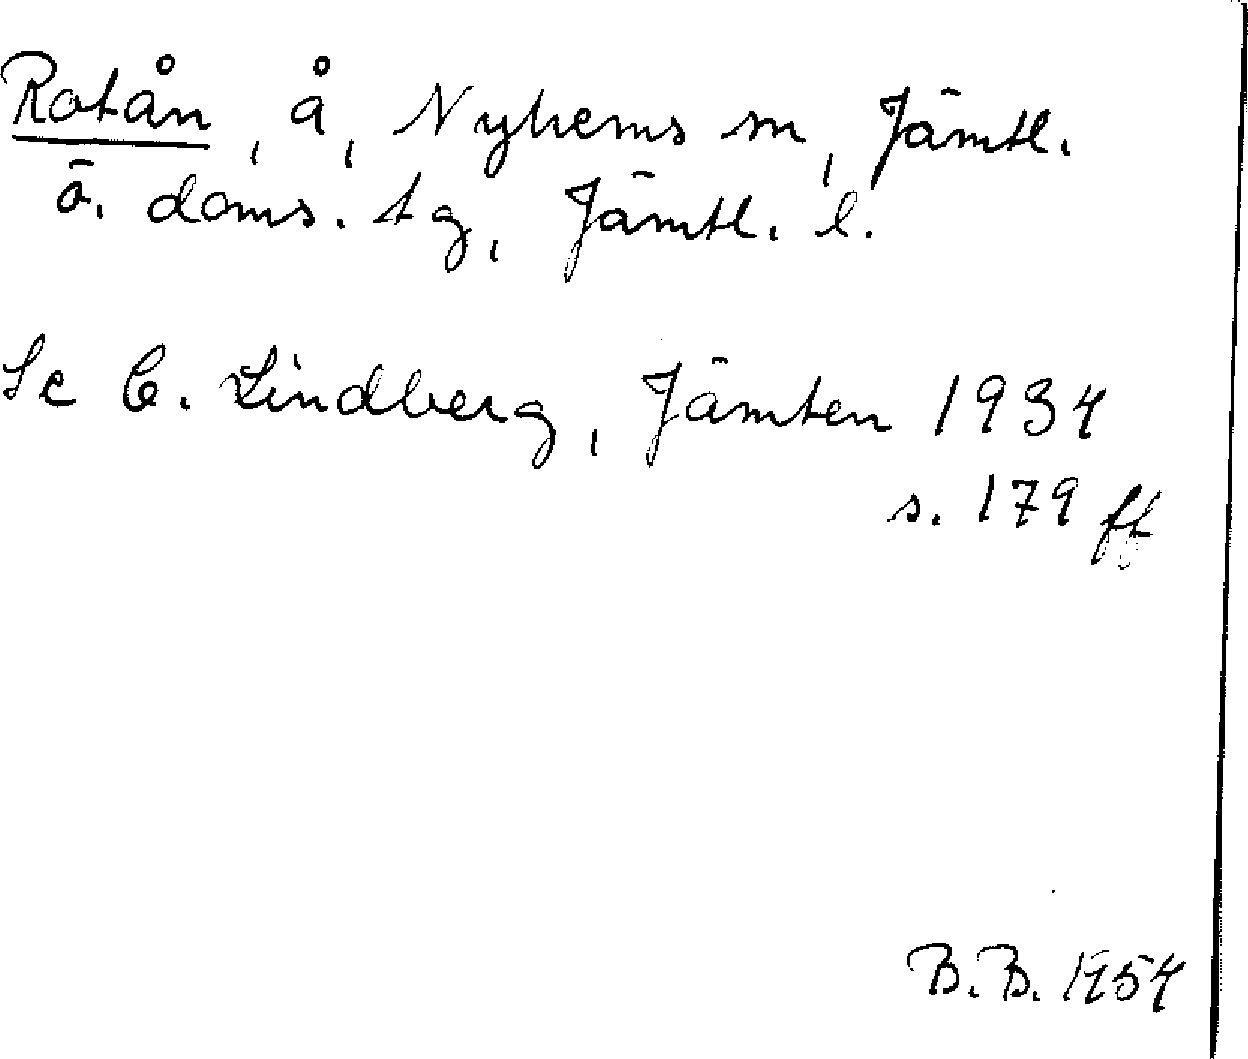 Rotån, å, Nyhems sn, Jämtl.
ö. doms. tg, Jämtl. l.
Se C. Lindberg, Jämten 1934
s. 179 ff
B.B. 1954